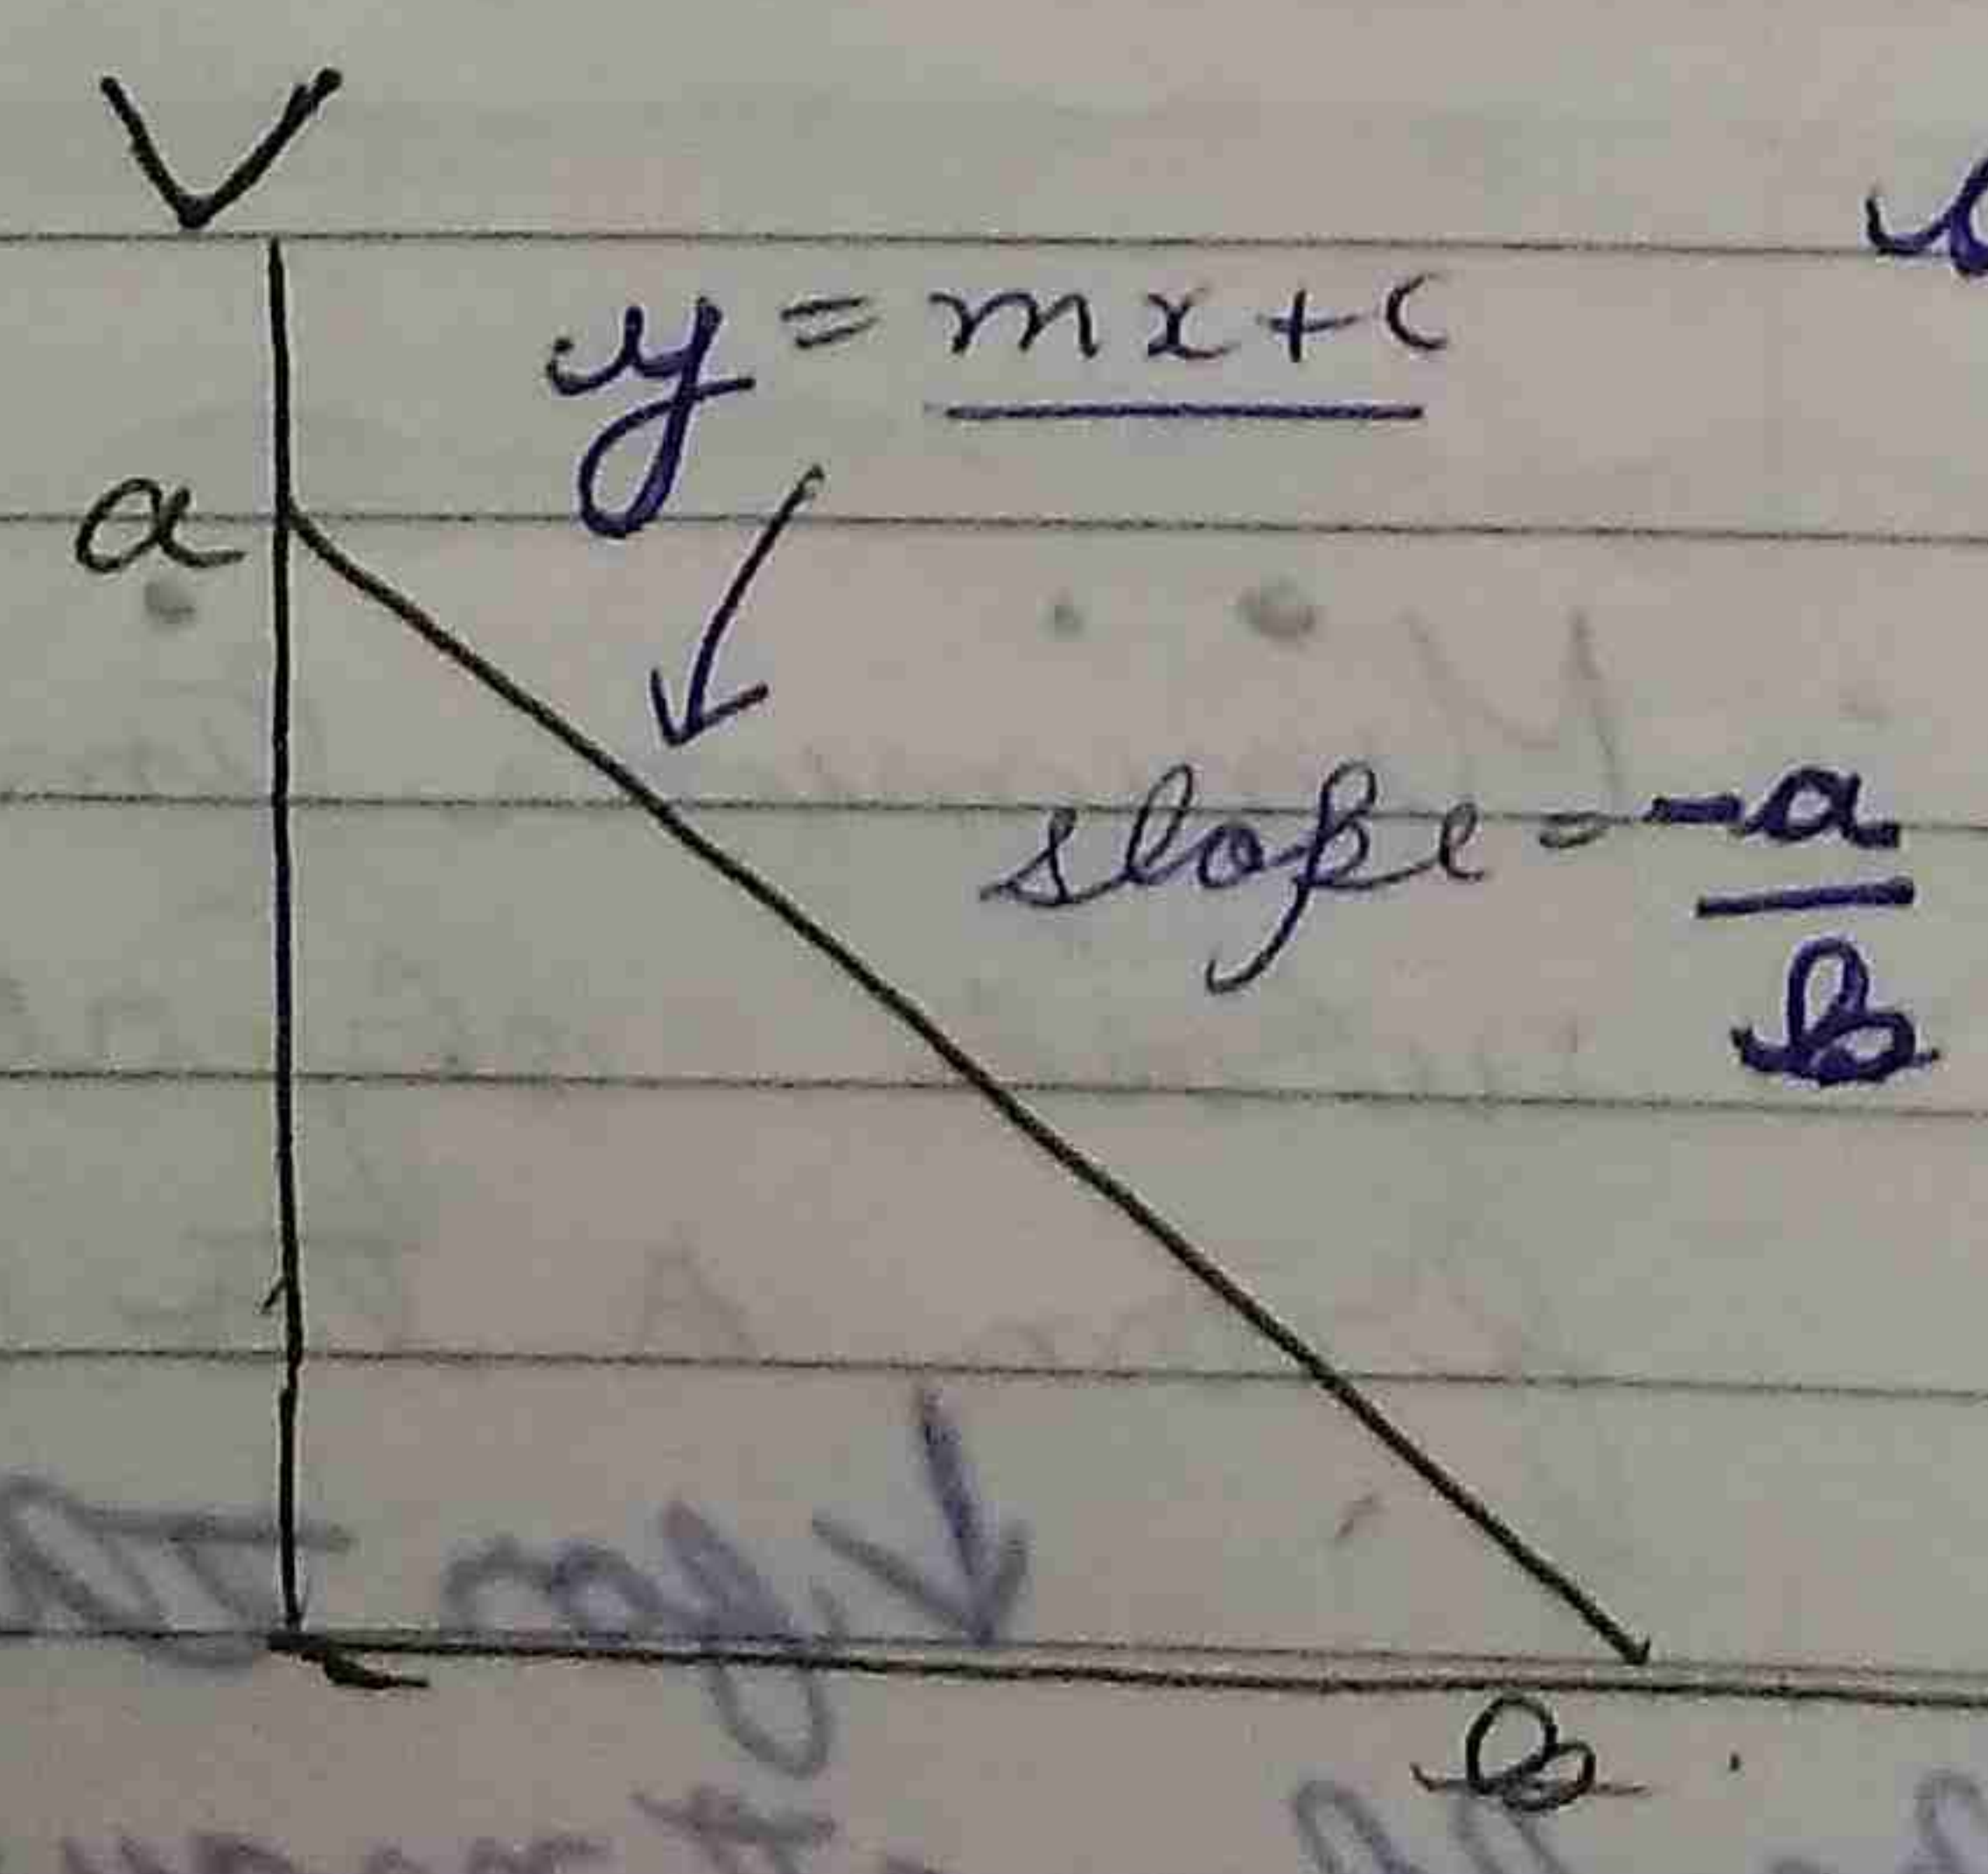 V
y = mx+c
a
slope = -a/b
b